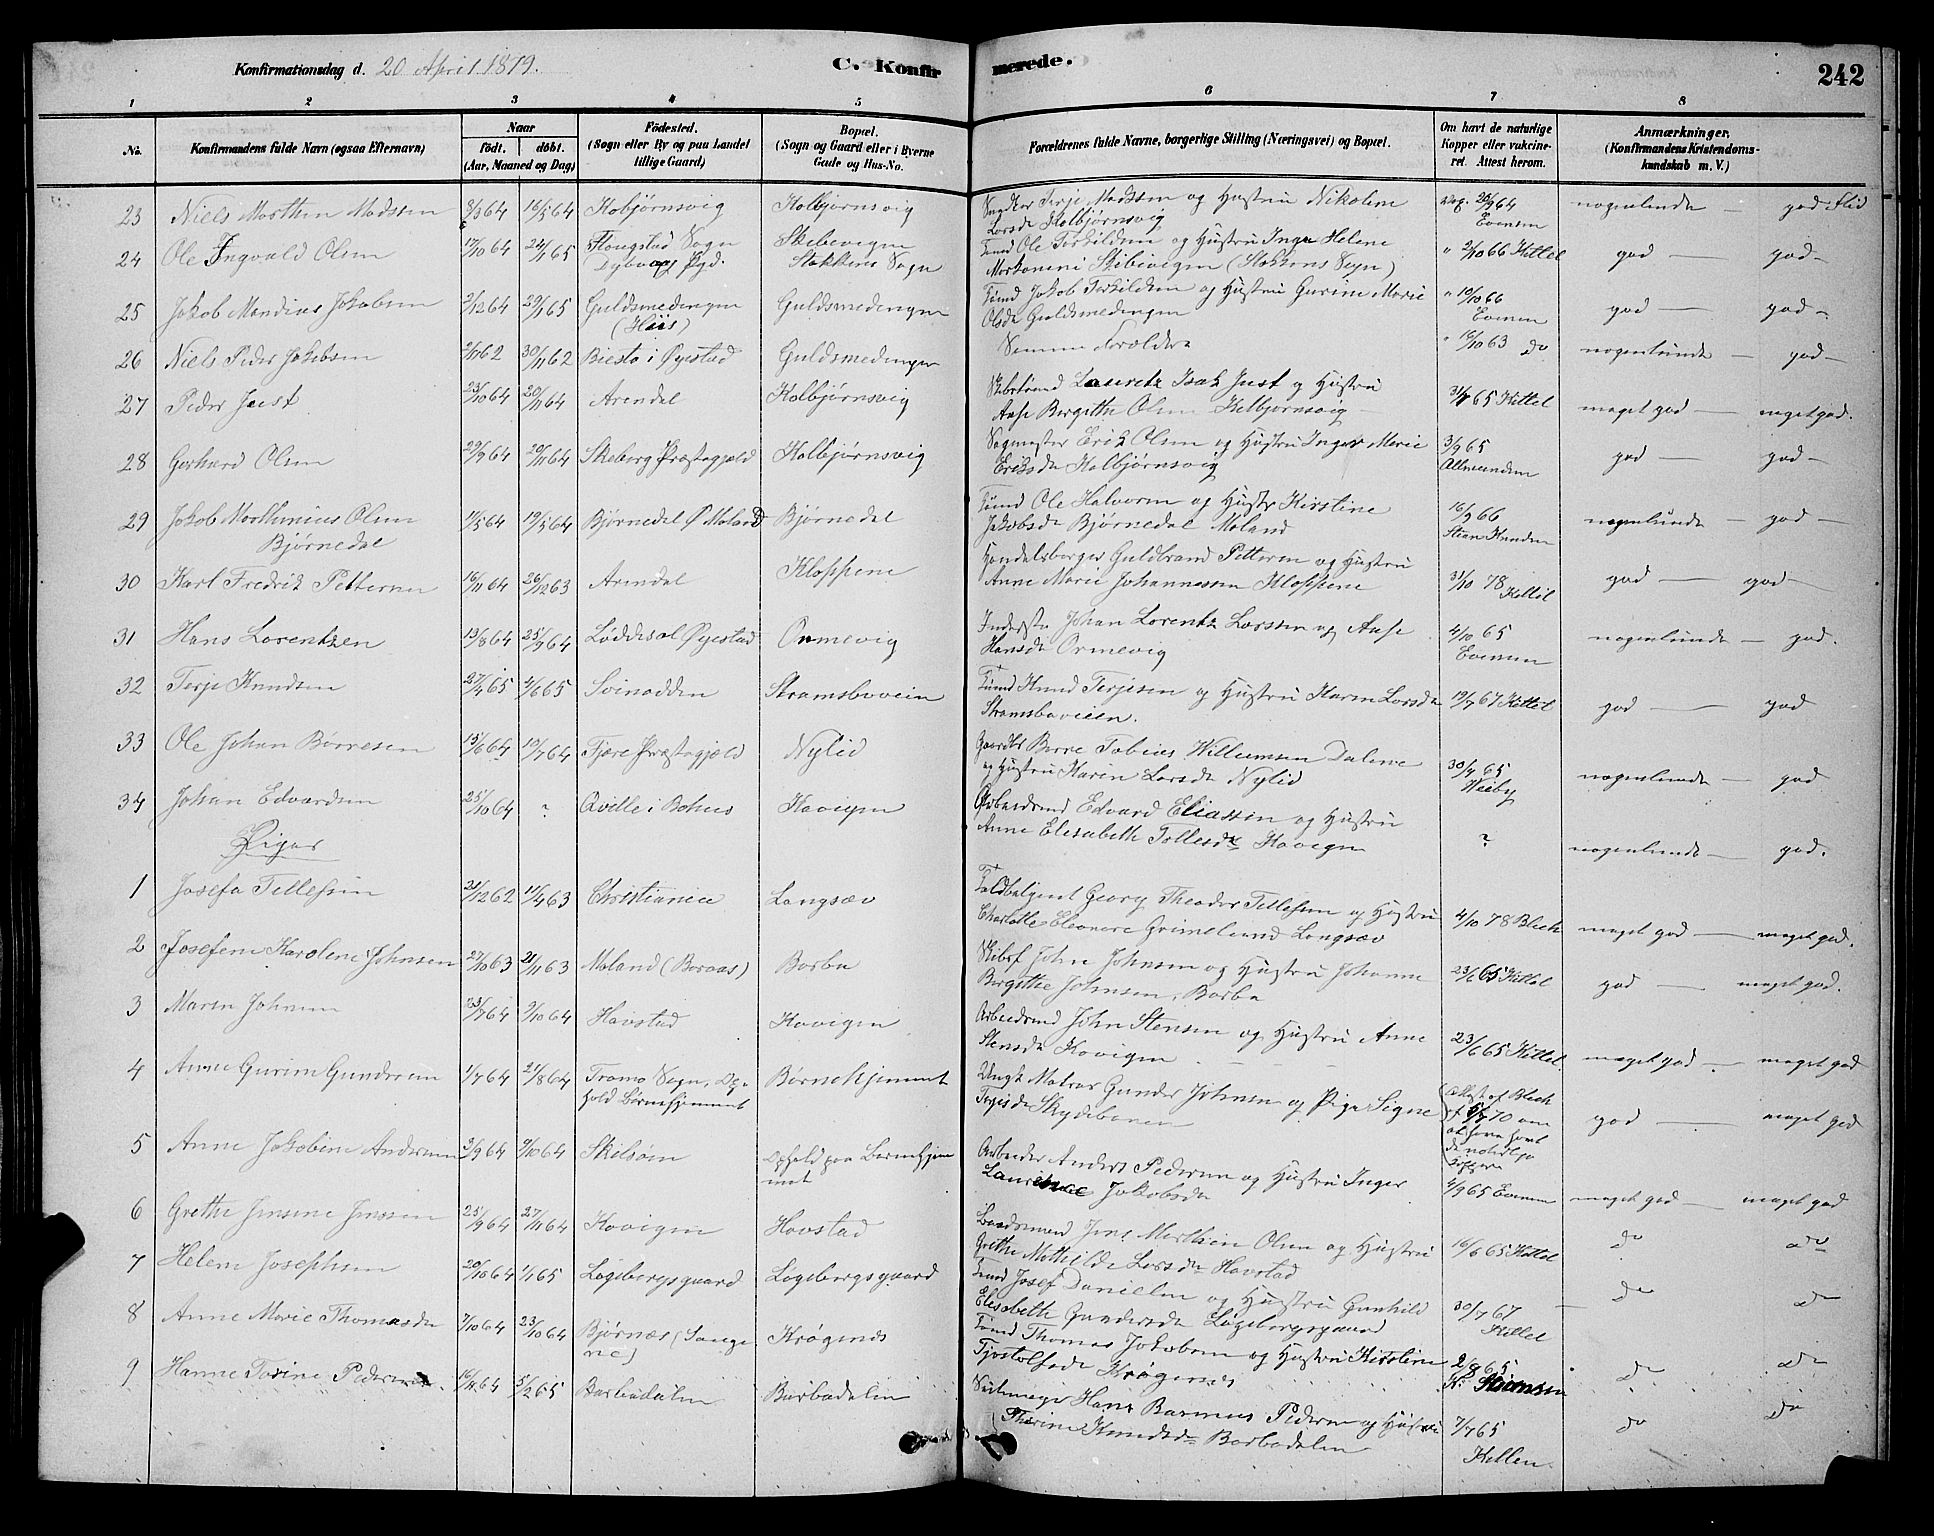 Konfirmationsdag d. 20 April 1879.
C. Konfirmerede.
242
1 2 3 4 5 6 7 8
No.
Konfirmandens fulde Navn (ogsaa Efternavn)
Naar
født. døbt.
(Aar, Maaned og Dag)
Fødested.
(Sogn eller By og paa Landet
tillige Gaard)
Bopæl.
(Sogn og Gaard eller i Byerne
Gade og Hus-No.
Forældrenes fulde Navne, borgerlige Stilling (Næringsvei) og Bopæl.
Om havt de naturlige
Kopper eller vakcine-
ret. Attest herom.
Anmærkninger.
(Konfirmandens Kristendoms-
kundskab m. V.)
23 Niels Morthen Madssen 8/3 64 16/5 64 Kolbjørnsvig Kolbjørnsvig
Terje Madssen og Hustru Nikoline
Larsdr Kolbjørnsvig
Evensen
nogenlunde — god Flid
24 Ole Ingvald Olsen 17/10 64 24/1 65 Flougstad Sogn Skibevigen
Dybvaag Pgd. Stokkens Sogn
Tømd Ole Terkildsen og Hustru Inger Helene
Skibevigen (Stokkens Sogn)
" 2/10 66 Kittel god — god —
25 Jakob Mandius Jakobsen 2/12 64 29/1 65 Guldsmedengen Guldsmedengen
(Hiis)
Tømd Jakob Terkildsen og Hustru Gurine Marie
Olsdr Guldsmedengen
" 10/10 66
Evensen
god — god —
26 Niels Peder Jakobsen 2/11 62 30/11 62 Biesta i Øyestad Guldsmedengen
Samme Forældre
" 16/10 63 do nogenlunde — god —
27 Peder Just 23/10 64 20/11 64 Arendal Kolbjørnsvig
Skibstømd Lauretz Isak Just og Hustru
Aase Bergithe Olsen Kolbjørnsvig
65 Kittel meget god — meget god.
28 Gerhard Olsen 29/9 64 20/11 64 Skeberg Præstegjeld Kolbjørnsvig
Sagmester Erik Olsen og Hustru Inger Marie
Eriksdr Kolbjørnsvig
3/9 65
god — god —
29 Jakob Morthinius Olsen 1/5 64 19/5 64 Bjørnedal Ø Moland Bjørnedal
Bjørnedal
Tømd Ole Halvorsen og Hustr Kirstine
Jakobsdr Bjørnedal Moland
16/9 66
Stian Knudsen
nogenlunde — god —
30 Karl Fredrik Pettersen 16/11 64 26/12 63 Arendal Kloppene
Handelsborger Guldbrand Pettersen og Hustru
Anne Marie Johannessen Kloppene
31/10 78 Kittel
god — god —
31 Hans Lorentzen 13/8 64 25/9 64 Løddesøl Øyestad Ormevig
Inderste Johan Lorentz Larssen og Aase
Hansdr Ormevig
4/10 65
Evensen
nogenlunde — god.
32 Terje Knudsen 27/4 65 4/6 65 Svinodden Strømsbuveien
Tømd Knud Terjesen og Hustru Karen Larsdr
Strømsbuveien.
19/7 67 Kittel god — god
33 Ole Johan Børresen 15/6 64 10/7 64 Fjære Præstegjeld Nylid
Gaardbr Børre Tobias Willumsen Dalene
og Hustru Karen Larsdr Nylid
30/7 65
nogenlunde — god
34 Johan Edvardsen 25/10 64 ? Qville i Bohus Havigen
Arbeidsmd Edvard Eliassen og Hustru
Anne Elisabeth Tollesdr Havigen
? nogenlunde — god.
Piger
1 Josefa Tellefsen 21/12 62 11/4 63 Christiania Langsæv
Toldbetjent Georg Theodor Tellefsen og Hustru
Charlotte Eleonore Grimelund Langsæv
4/10 78 Blech meget god — meget god.
2 Josefine Karoline Johnsen 27/10 63 21/11 63 Moland (Boraas) Barbu
Skibsf John Johnsen og Hustru Johanne
Bergithe Johnsen, Barbu
23/6 65 Kittel god — meget god.
3 Maren Johnsen 23/7 64 9/10 64 Havstad Havigen
Arbeidsmd John Stensen og Hustru Anne
Stensdr Havigen
23/6 65 Kittel meget god — meget god
4 Anne Gurine Gundersen 1/7 64 21/8 64 Tromø Sogn, Op- Børnehjemmet
hold Børnehjemmet
Ungk Matros Gunder Johnsen og Pige Signe
Terjesdr Skydebanen
Attest af Blech
god — meget god
5 Anne Jakobine Andersen 3/9 64 9/10 64 Skilsøen Ophold paa Børnehjem
met
Arbeider Anders Pedersen og Hustru Inger
Jakobsdr
4/9 65 Evensen meget god — meget god
6 Grethe Jensine Jenssen 25/9 64 27/11 64 Havigen Havstad
Baadsmand Jens Morthen Olsen og Hustru
Grethe Mathilde Larsdr Havstad
16/6 65 Kittel do do
7 Helene Josephsen 20/10 64 1/1 65 Løgebergsgaard Løgebergsgaard
Tømd Josef Danielsen og Hustru Gunhild
Elisabeth Gundersdr Løgebergsgaard
30/7 67
Kittel
do do
8 Anne Marie Thomasdr 7/10 64 23/10 64 Bjørnæs (Sange Krøgenes
ne)
Tømd Thomas Jakobsen og Hustru Kirstine
Tjostolfsdr Krøgenes
do do
9 Hanne Torine Pedersen 16/11 64 5/2 65 Barbudalen Barbudalen
Hans Rasmus Pedersen og Hustru
Thorine Knudsdr Barbudalen
7/7 65
do do